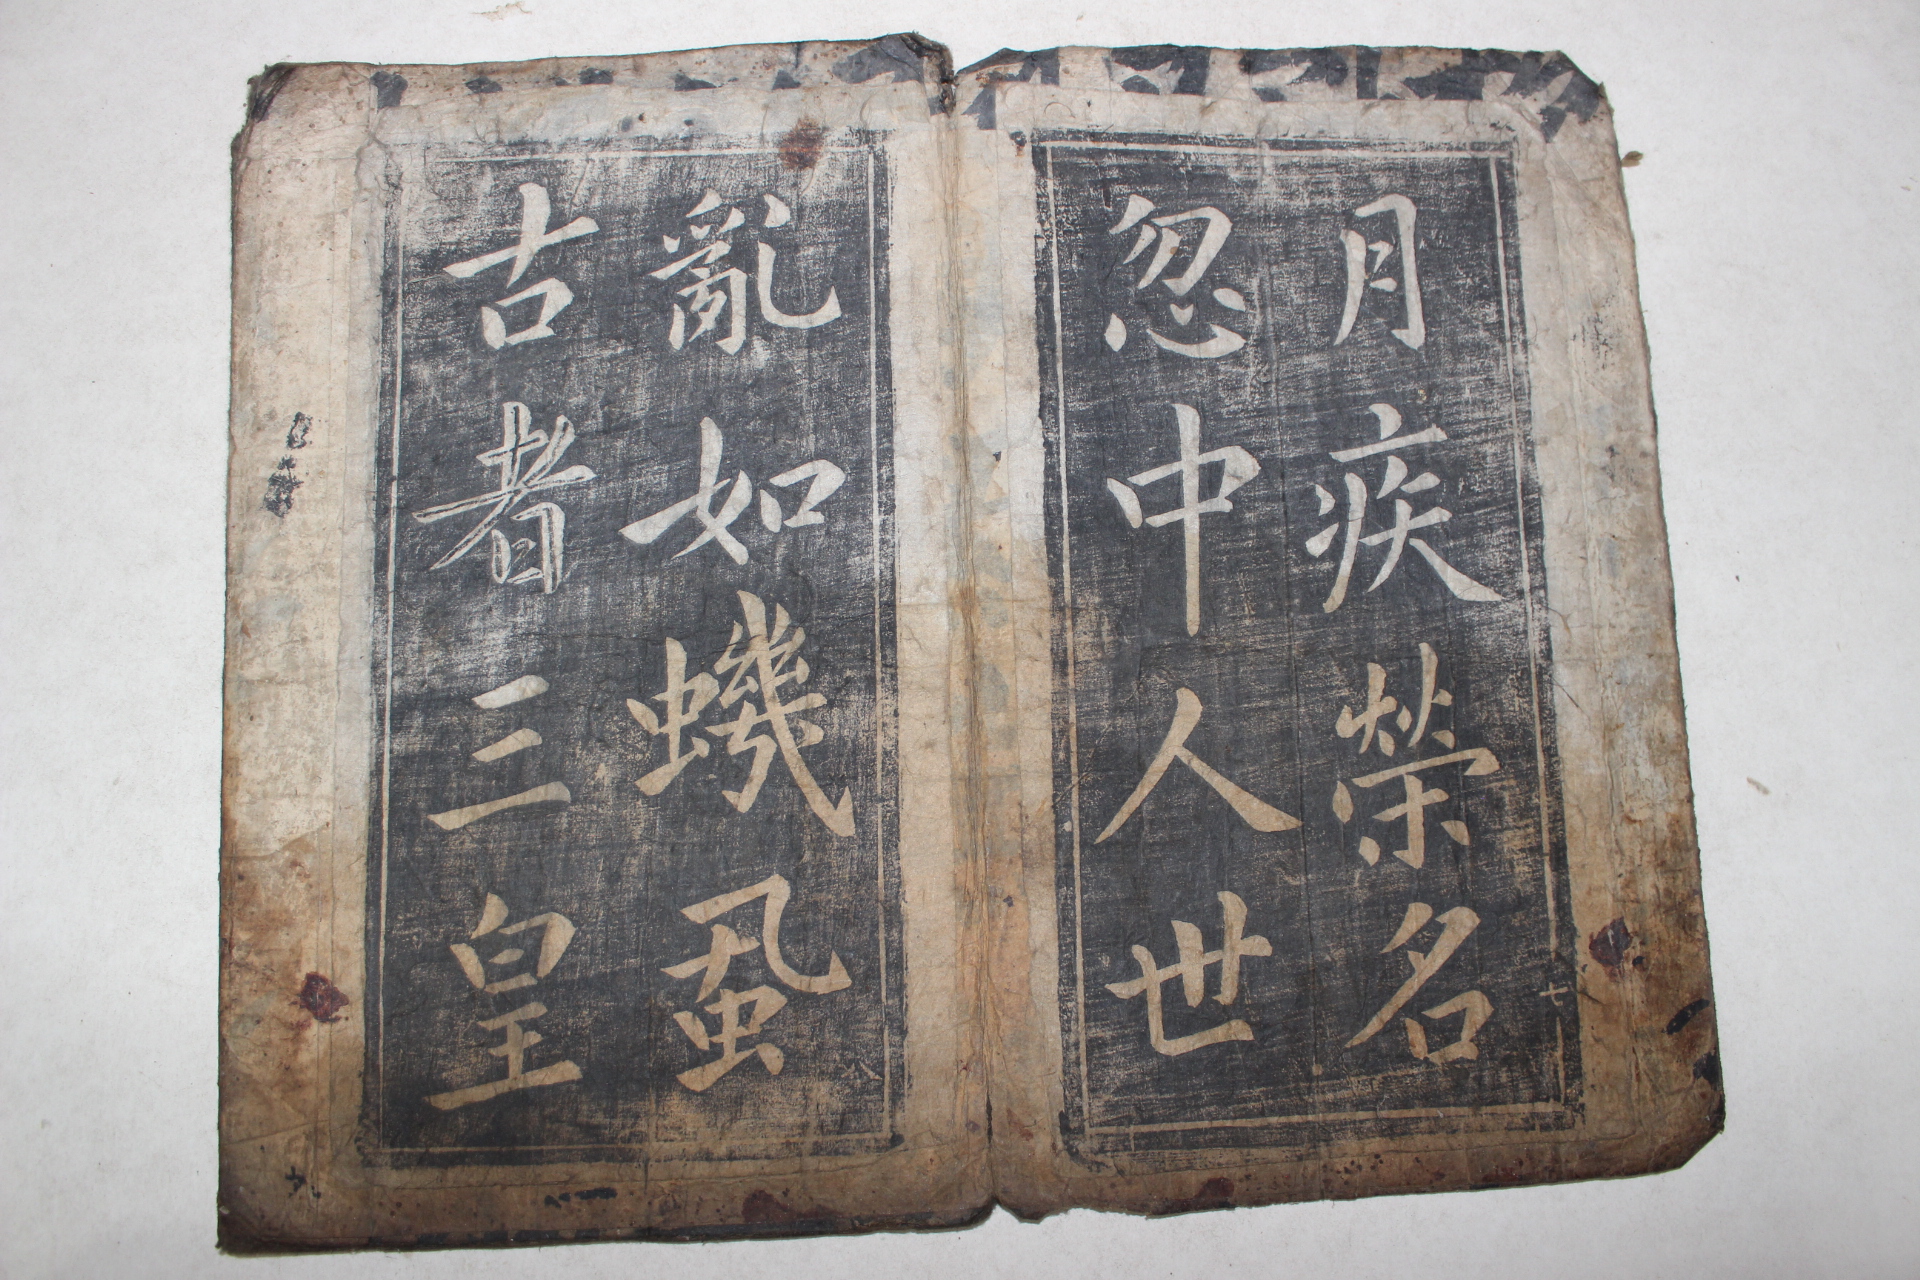 月疾榮名
忽中人世
七
亂如蟣蝨
古者三皇
八